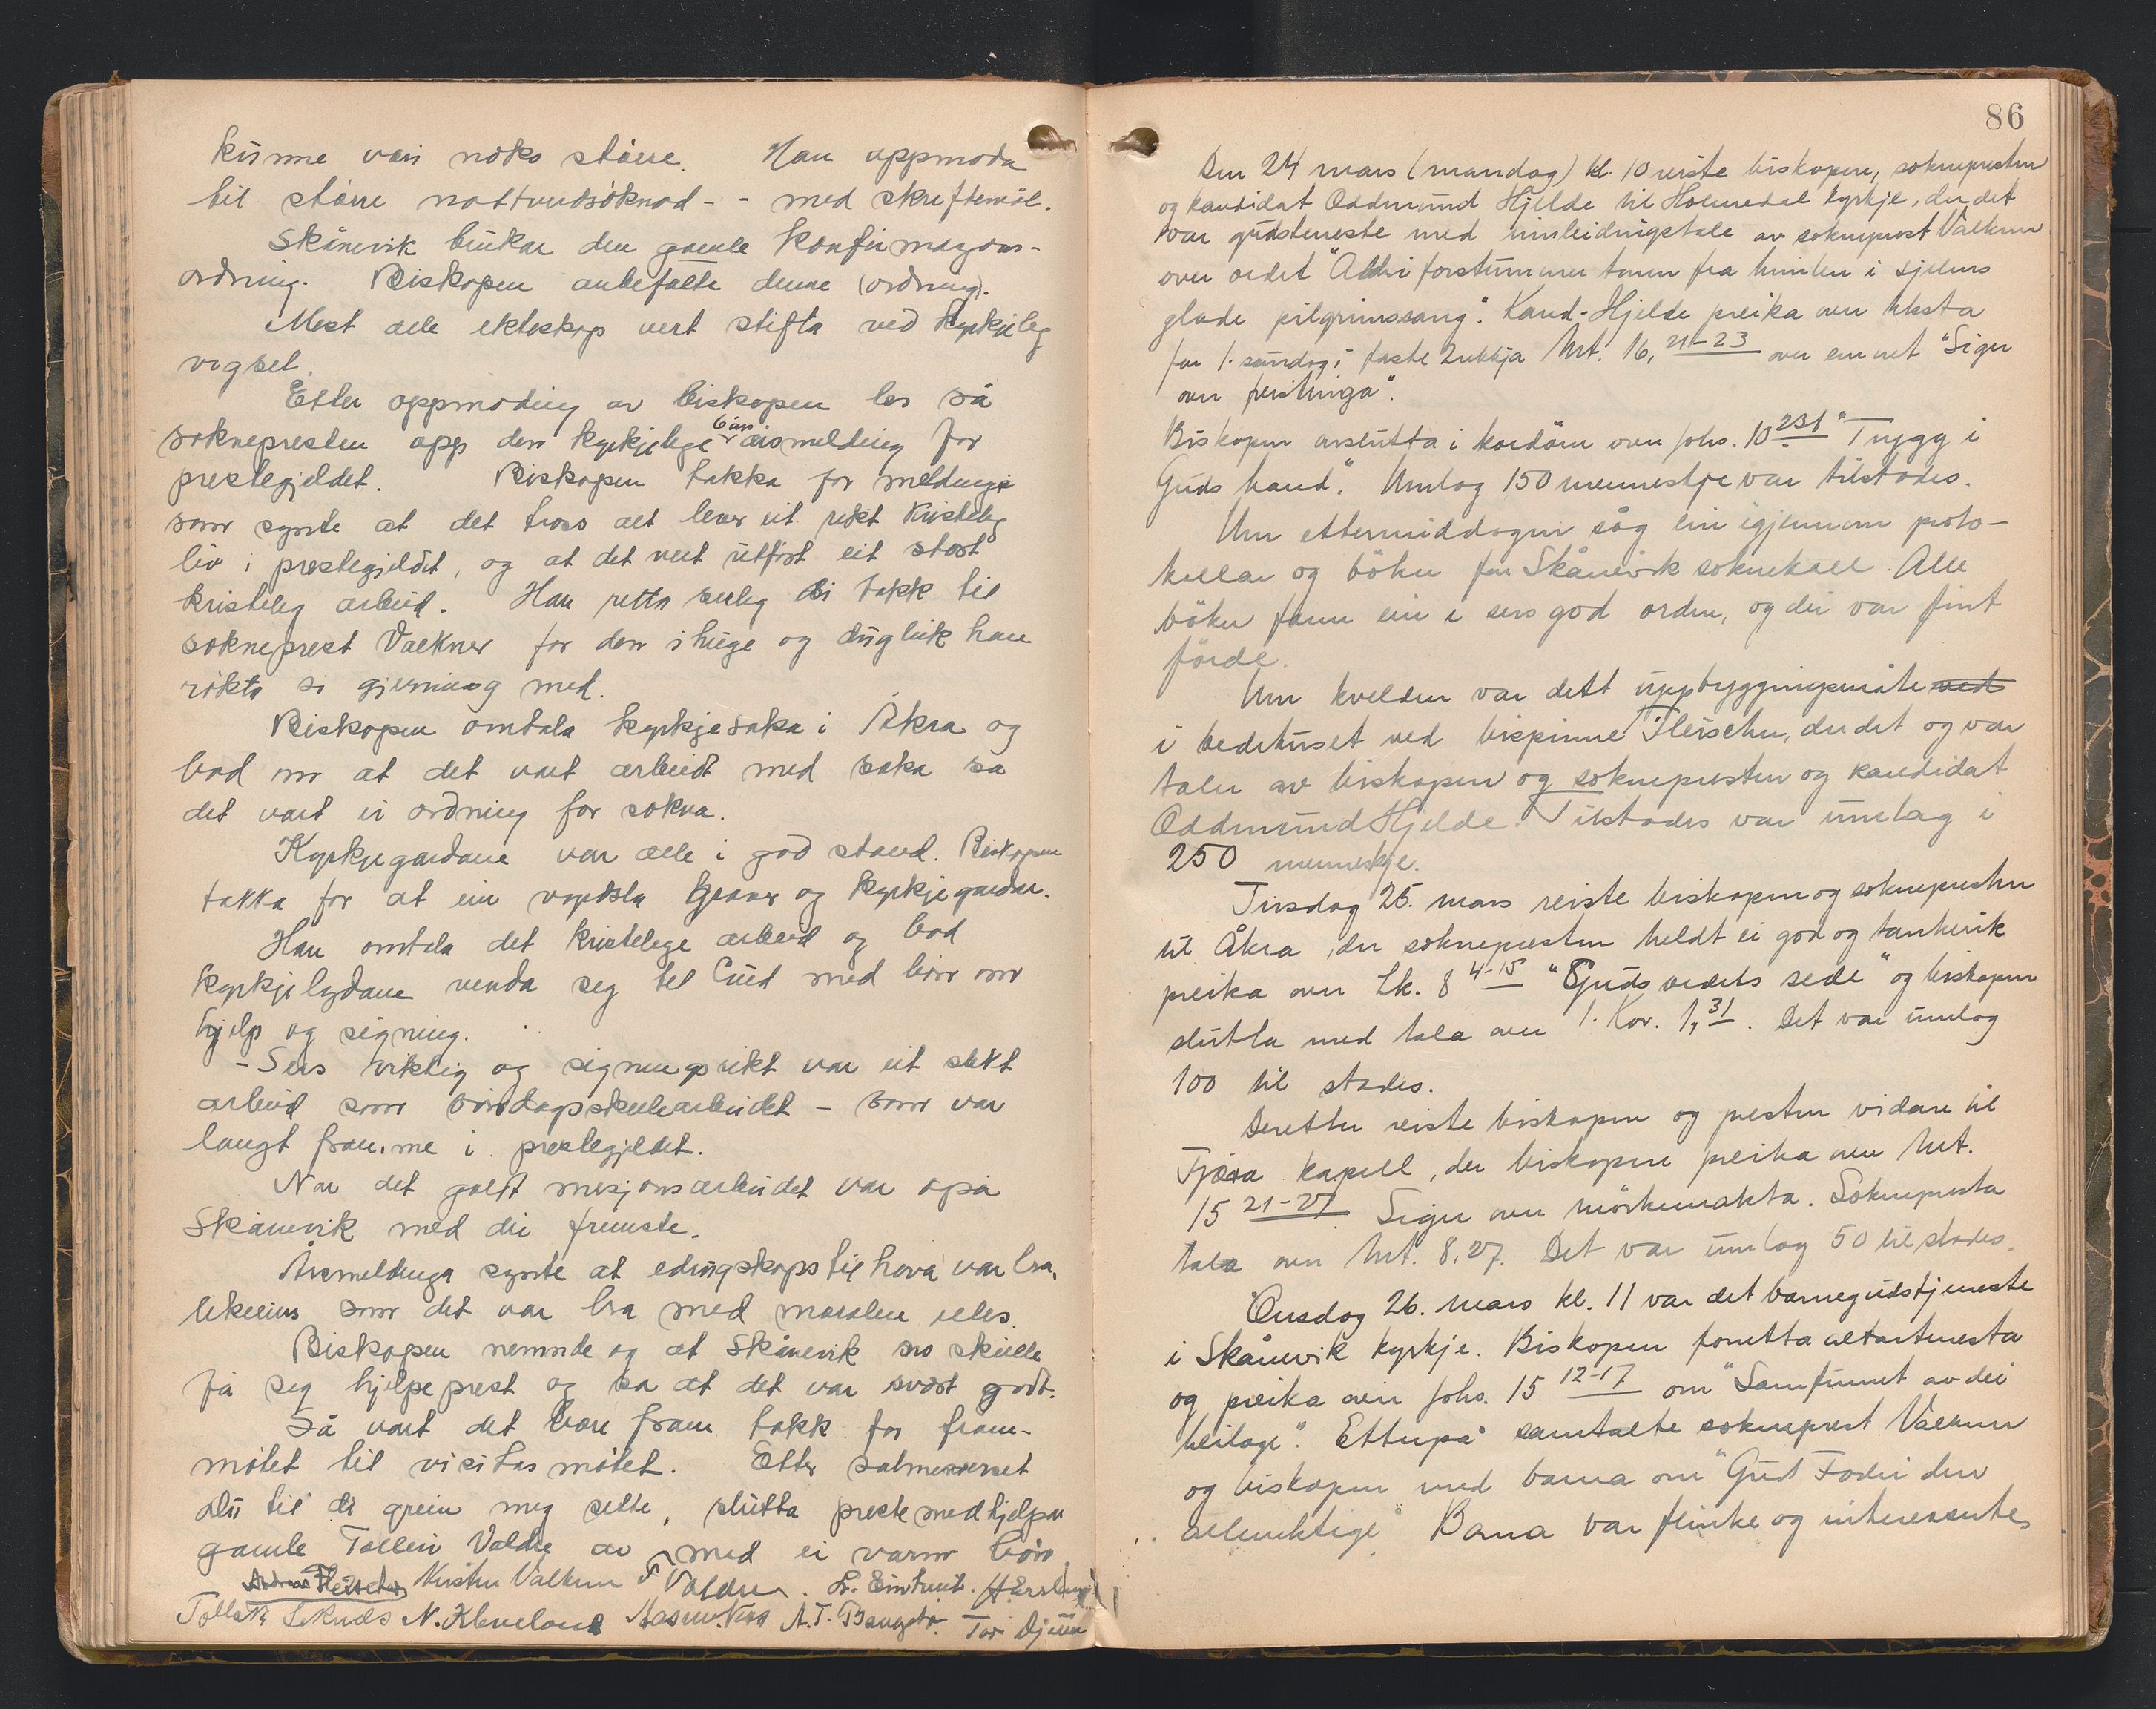 kunne vori noko større. Han uppmoda
til større nattverdsöknad - - med skriftemål.
Skånevik brukar den gamle konfirmasjons-
ordning. Biskopen anbefalte denne (ordning).
Mest alle ekteskap vert stifta ved kyrkjeleg
vigsel.
Etter oppmoding av biskopen las så
soknepresten opp den kyrkjelege 6 års årsmelding for
prestegjeldet. Biskopen takka for meldinga
som synte at det tross alt lever eit rikt kristeleg
liv i prestegjeldet, og at det vert utført eit stort
kristeleg arbeid. Han retta serleg ei takk til
sokneprest Valkner for den ihuge og dugleik han
røkta si gjerning med.
Biskopen omtala kyrkjesaka i Åkra og
bad om at det vart arbeidt med saka så
det vart ei ordning for sokna.
Kyrkjegardane var alle i god stand. Biskopen
takka for at ein vyrdsla graver og kyrkjegardar.
Han omtala det kristelege arbeid og bad
kyrkjelydane venda seg til Gud med bön om
hjelp og signing.
- Sers viktig og signingsrikt var eit slikt
arbeid som söndagsskulearbeidet - som var
langt framme i prestegjeldet.
Når det galdt misjonsarbeidet var også
Skånevik med dei fremste.
Årsmeldinga synte at edrugskapstilhöva var bra,
likeeins som det var bra med moralen elles.
Biskopen nemnde og at Skånevik no skulle
få seg hjelpeprest og sa at det var svært godt.
Så vart det bore fram takk for fram-
møtet til visitasmøtet. Etter salmeverset
Du til di grein meg sette, slutta prestemedhjelpar
gamle Tollein Valdre av med ei varm bön.
Andreas Fleischer Kristen Valkner T Valdre. L. Eintveit. H. Ersland
Tollak Leknes N. Kleveland Rasm. Nes A. T. Baugstø. Tor Djuve
86
Den 24 mars (mandag) kl. 10 reiste biskopen, soknepresten
og kandidat Oddmund Hjelde til Holmedal kyrkje, der det
var gudsteneste med innleidingstale av sokneprest Valkner
over ordet "Aldri forstummer tonen fra himlen i sjelens
glade pilgrimssang". Kand. Hjelde preika over teksta
for 1. sundag i faste 2 rekkja Mt. 16, 21-23 over emnet "Siger
over freistinga".
Biskopen avslutta i kordöra over Johs. 10 28 f "Trygg i
Guds hand". Umlag 150 menneskje var tilstades.
Um ettermiddagen såg ein igjennom proto-
kollar og böker for Skånevik soknekall. Alle
böker fann ein i sers god orden, og dei var fint
förde.
Um kvelden var dett uppbyggingsmöte ved
i bedehuset ved bispinne Fleischer, der det og var
taler av biskopen og soknepresten og kandidat
Oddmund Hjelde. Tilstades var umlag i
250 menneskje.
Tirsdag 25. mars reiste biskopen og soknepresten
til Åkra, der soknepresten heldt ei god og tankerik
preika over Lk. 8 4-15 "Guds ordets sede" og biskopen
slutta med tala over 1. Kor. 1, 31. Det var umlag
100 til stades.
Deretter reiste biskopen og presten vidare til
Fjæra kapell, der biskopen preika over Mt.
15 21-27 Siger over mörkemakta. Soknepresta
tala over Mt. 8, 27. Det var umlag 50 til stades.
Onsdag 26. mars kl. 11 var det barnegudstjeneste
i Skånevik kyrkje. Biskopen forretta altartenesta
og preika over Johs. 15 12-17 om "Samfunnet av dei
heilage". Etterpå samtalte sokneprest Valkner
og biskopen med barna om "Gud Fader den
allmektige". Barna var flinke og interesserte,